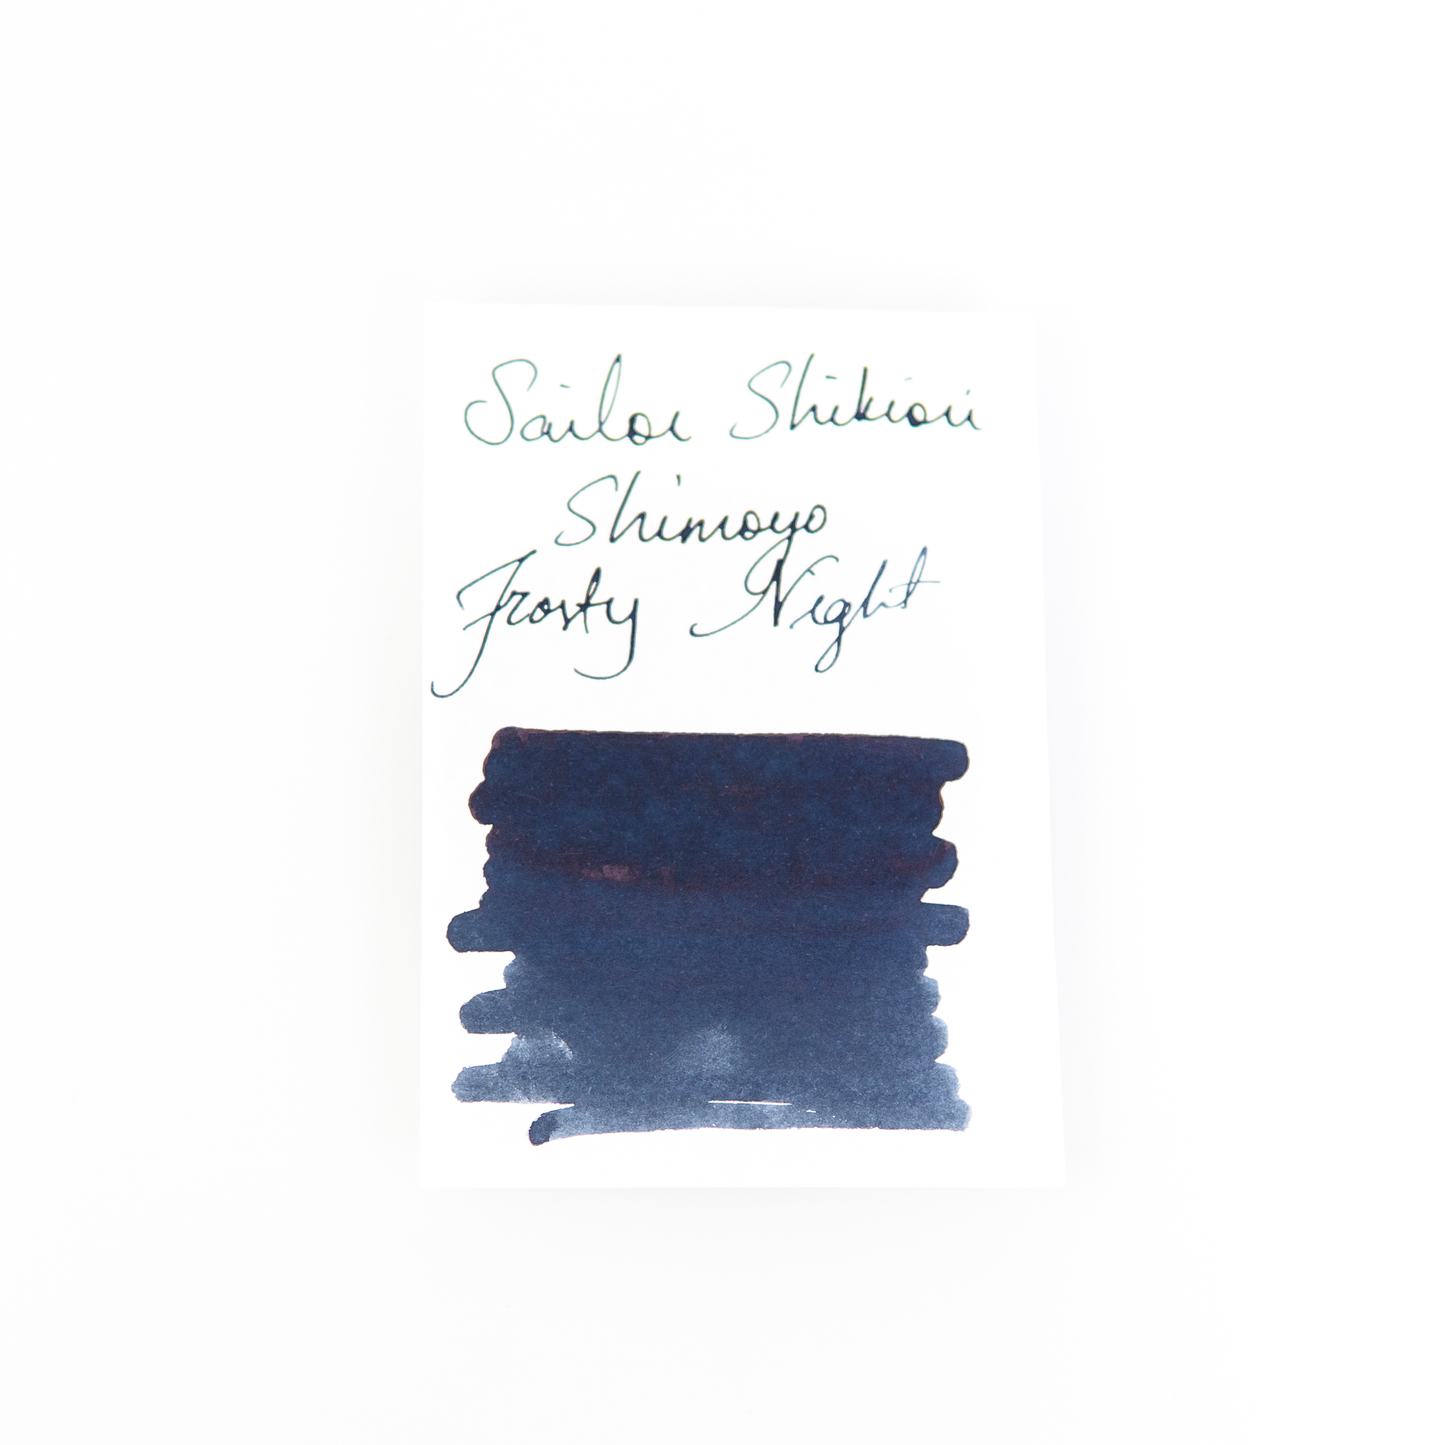 Sailor Shikiori
Shimoyo
Frosty Night